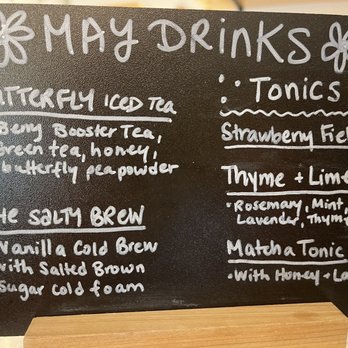 MAY DRINKS
ATTERFLY ICED TEA
Berry Booster Tea,
green tea, honey,
butterfly pea powder
HE SALTY BREW
Vanilla Cold Brew
with Salted Brown
Sugar cold foam
Tonics
Strawberry Fiel
Thyme + Lime
• Rosemary, Mint,
Lavender, Thym
Matcha Tonic
• With Honey + La